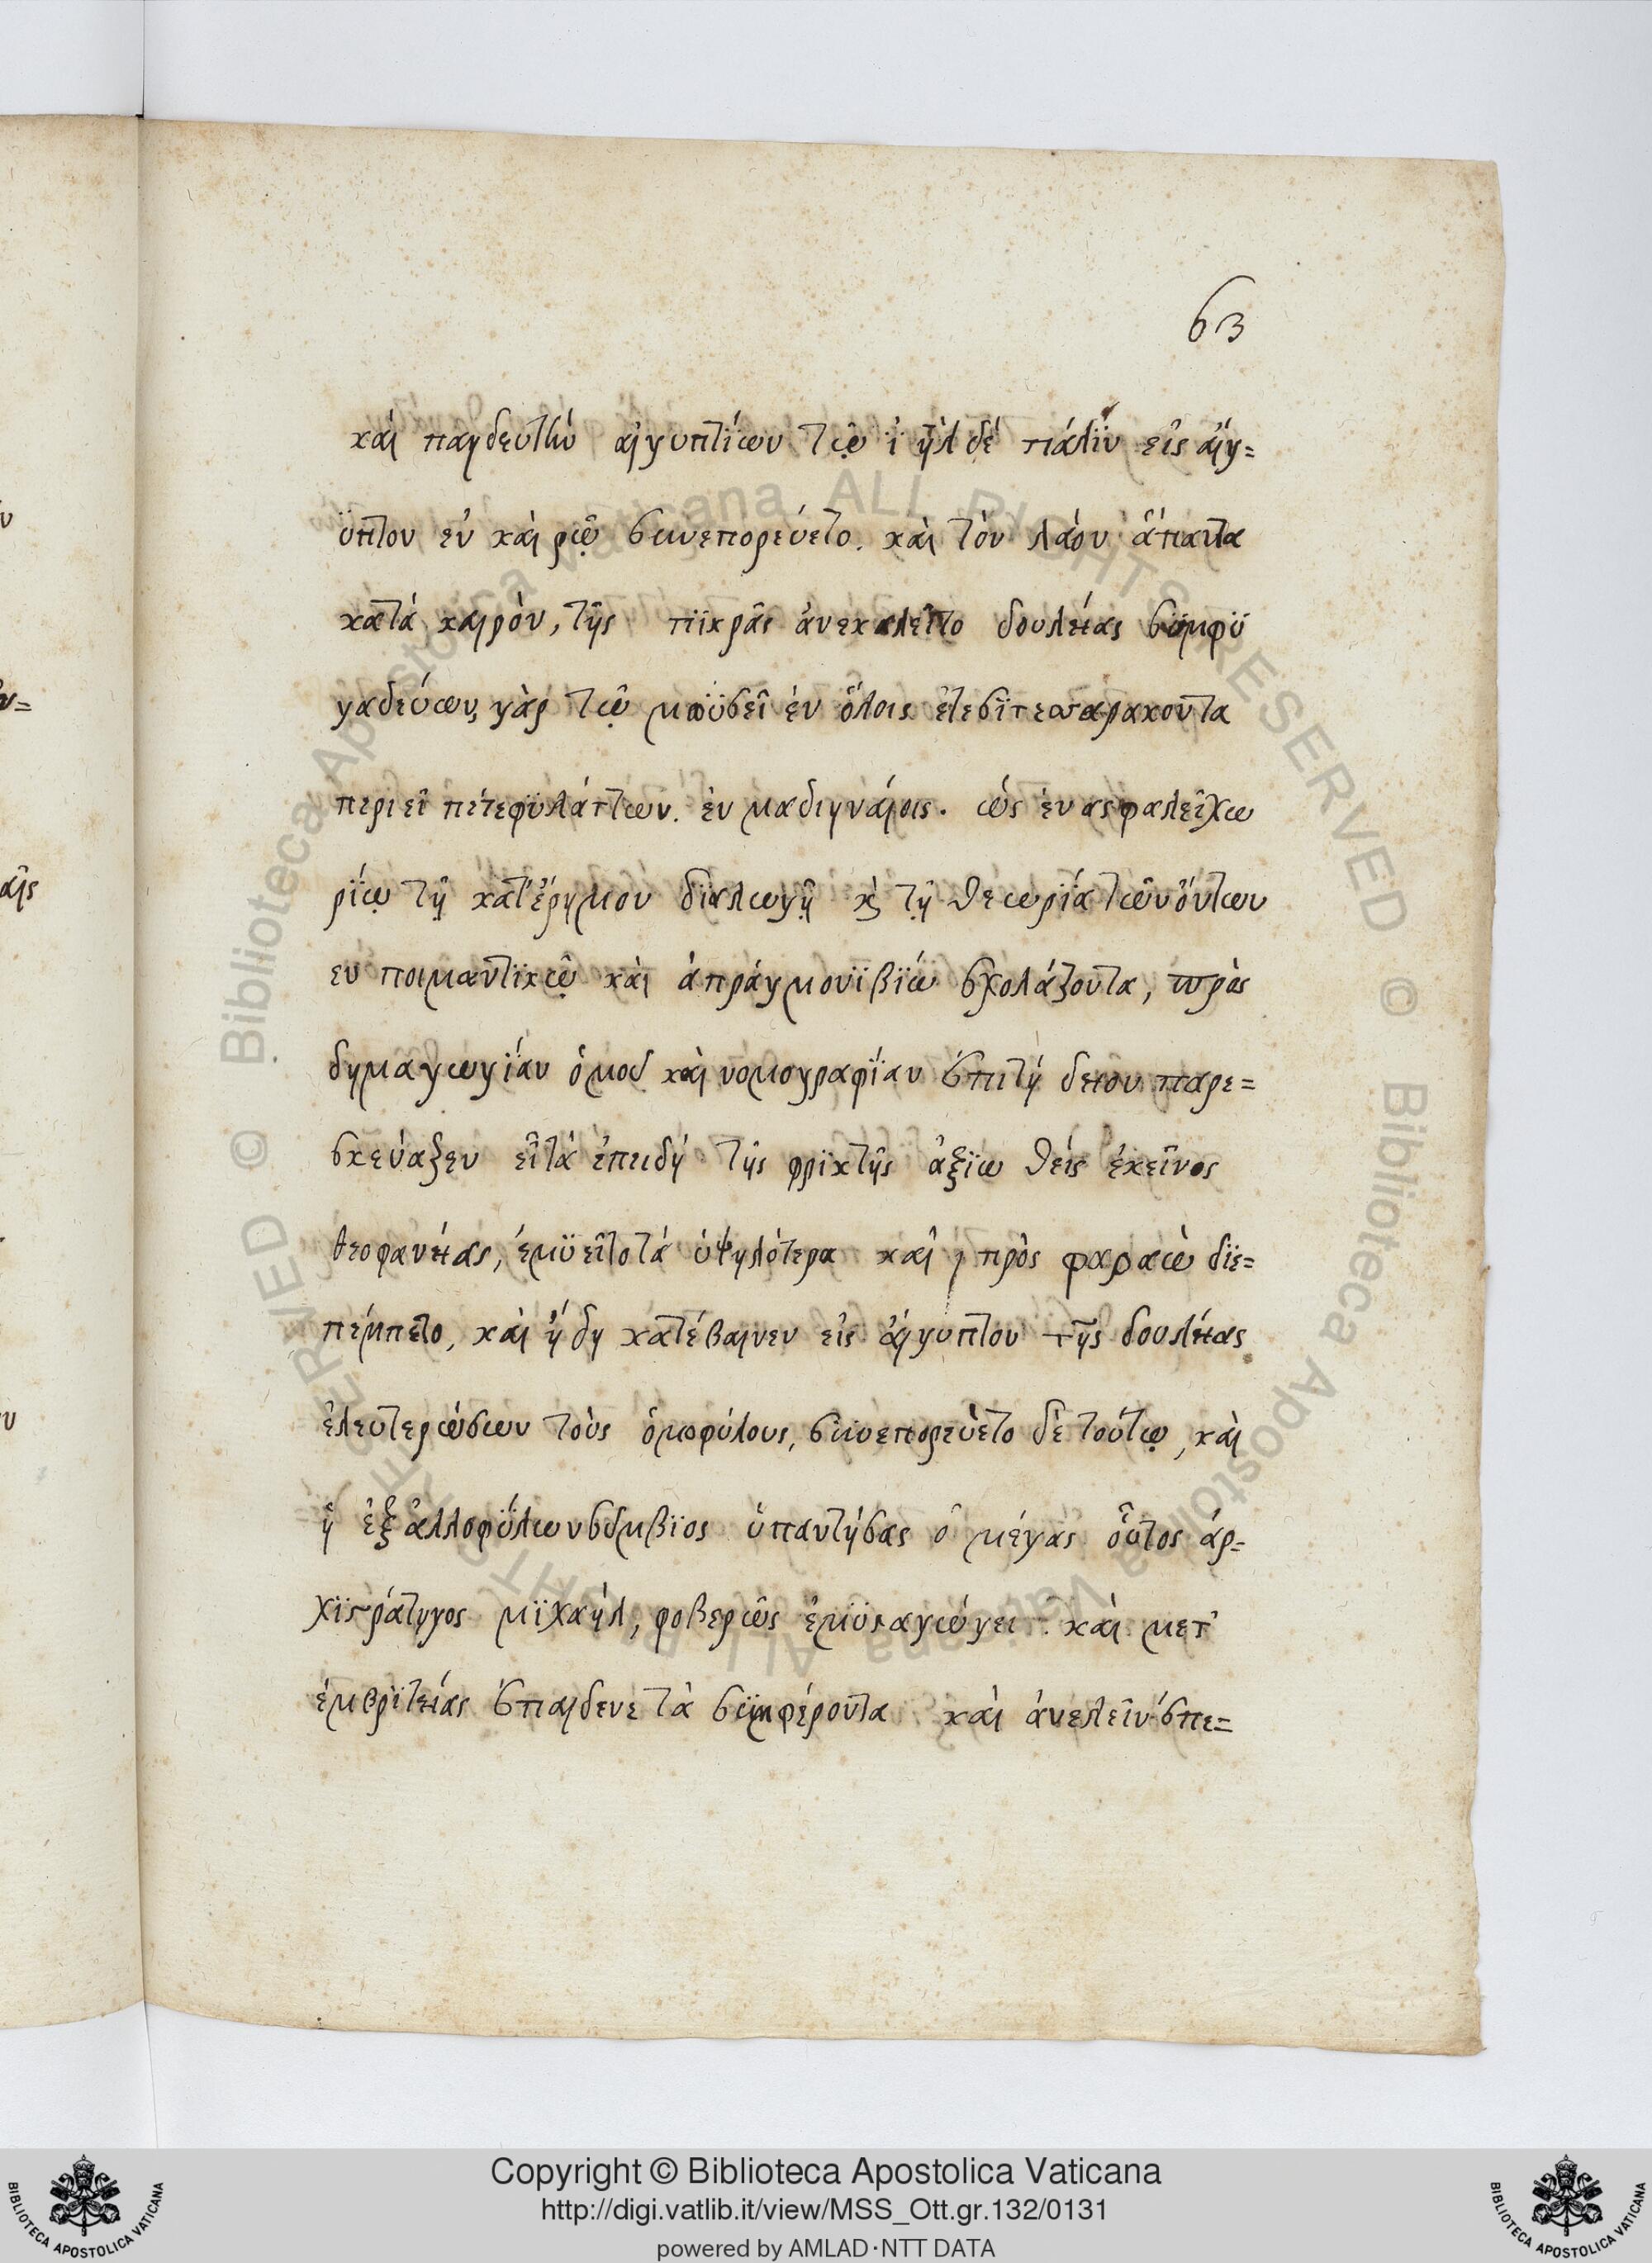 63
καὶ παιδευτὴν αἰγυπτίων τῷ ἰηλ δέ πάλϊν εἰς αἴγ=
ϋπτον ἐν και ρῷ συνεπορεύετο. καὶ τὸν λάον ἅπαντα
κατά καιρὸν, τῆς πϊκρᾶς ἀνεκαλεῖτο δουλείας συμφϋ
γαδεύων γὰρ τῷ μωϋσεῖ ἐν ὅλοις ἔτεσϊ τεσσαρακοντα
περιεῖ πέτεφϋλάττων. ἐν μαδιηνάιοις. ὡς ἐν ασφαλεῖχω
ρίῳ τῇ κατ᾽έρημον διαλωγῇ κ̀ τῇ θεωρίᾳ τῶν ὄντων
εν ποιμαντϊκῷ καὶ ἀπράγμονϊ βϊώ σχολάζοντα, πρὸς
δημαγωγίαν ὁμοῦ καὶ νομογραφΐαν ἐπιτή δειον παρε=
σκεύαξεν εἶτά ἐπειδή τῆς φρϊκτῆς ἀξϊω θείς ἐκεῖνος
θεοφανείας, ἐμϋεῖτο τά ὑψηλότερα καὶ πρὸς φαραὼ δϊε=
πέμπετο, καὶ ἤδη κατέβαινεν εἰς ἄιγυπτον τῆς δουλείας
ἐλευτερώσων τοὺς ὁμοφύλους, συνεπορεύετο δὲ τούτῳ, καὶ
ἡ ἐξ ἀλλοφΰλων σύμβϊος ὑπαντήσας ὁ μέγας οὗτος ἀρ=
χϊστράτηγος μϊχαήλ, φοβερῶς ἐμϋσαγώγει. καὶ μετ᾽
ἐμβρϊτείας ἐπαιδευε τὰ συμφέροντα καὶ ἀνελεῖν ἐπε=
Copyright © Biblioteca Apostolica Vaticana
http://digi.vatlib.it/view/MSS_Ott.gr.132/0131
powered by AMLAD·NTT DATA